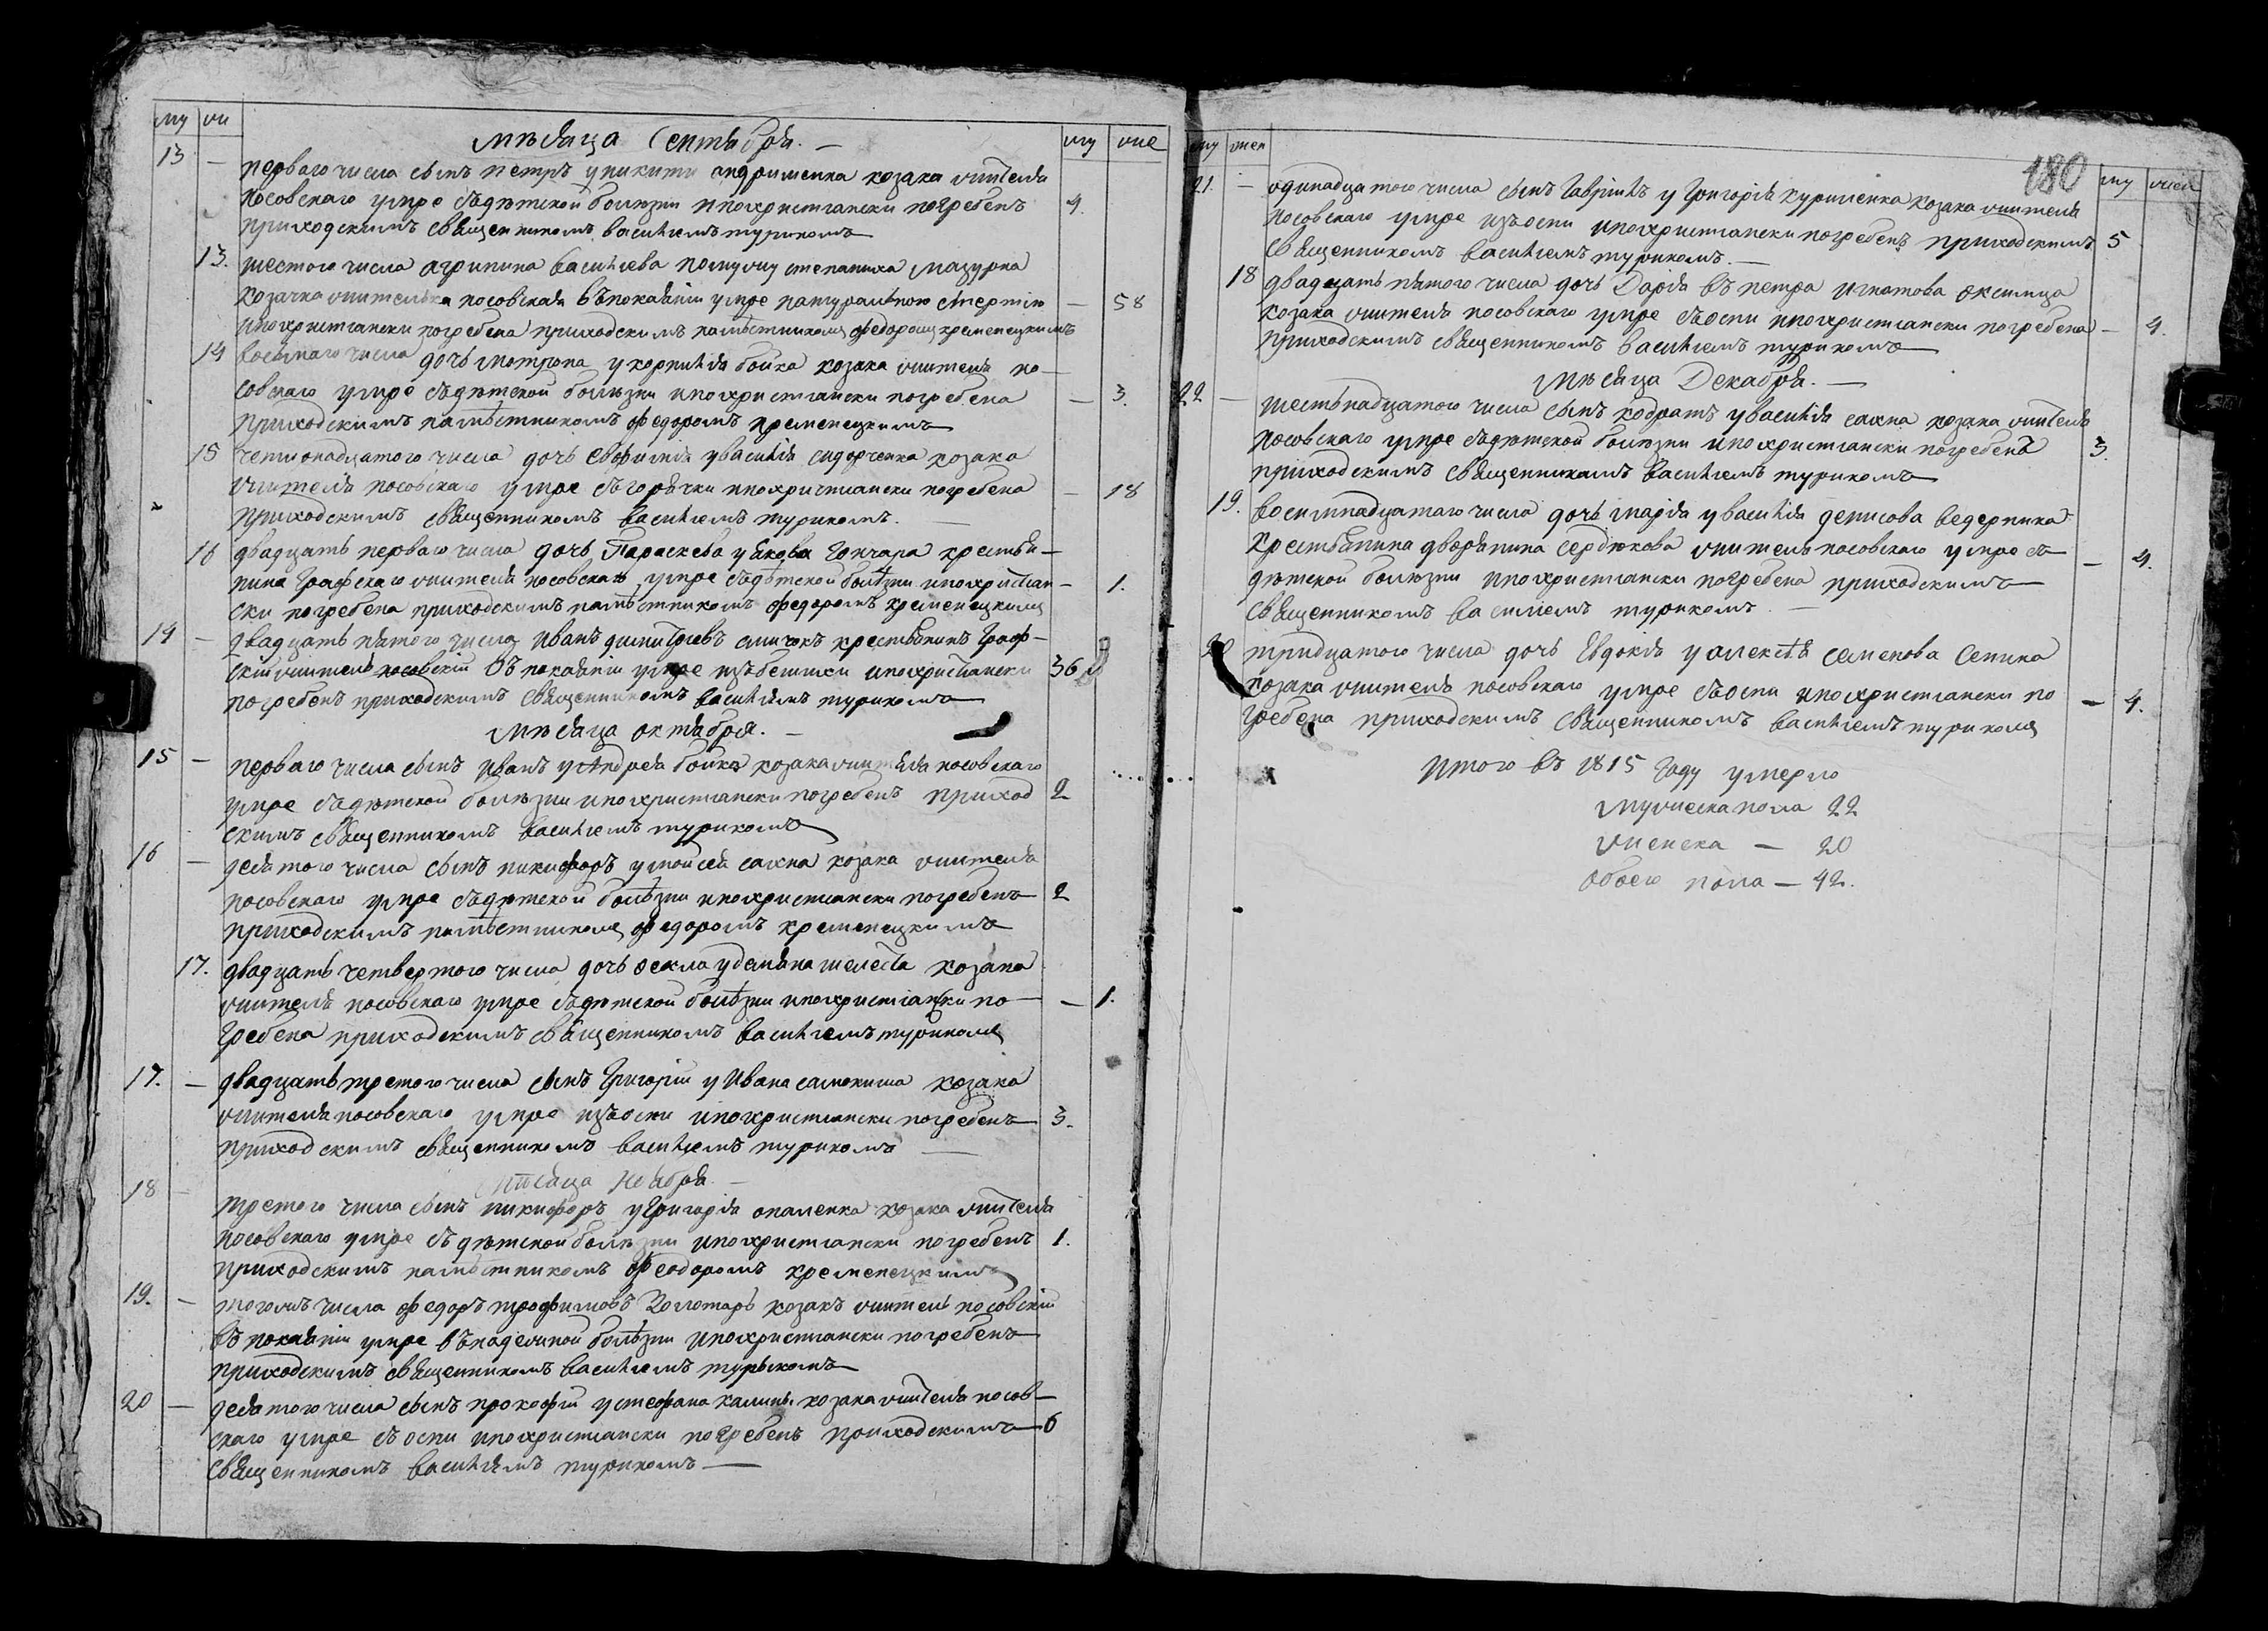 му же
мѣсяца Септября. —
му же
13 — перваго числа сынъ петръ у никити андришенка козака жителя
носовскаго умре съдѣтской болѣзни ипохристіански погребенъ 4.
приходскимъ священникомъ василіемъ турикомъ
13. шестого числа агрипина василіева помужу степаниха мазурка
козачка жителька носовская въпокаяніи умре натуральною смертію — 58
ипохристіански погребена приходскимъ намѣстникомъ федоромъ кременецкимъ
14 восьмаго числа дочь мотрона у корнилія бойка козака жителя но—
совскаго умре съдѣтской болѣзни ипохристіански погребена — 3.
приходскимъ намѣстникомъ федоромъ кременецкимъ
15 числа дочь евфимія увасилія сидорченка козака
жителя носовскаго умре съгорячки ипохристиански погребена — 18
приходскимъ священникомъ василіемъ турикомъ.
16 двадцать перваго числа дочь Параскева у якова гончара крестья—
нина графскаго жителя носовскаго умре съдѣтской болѣзни ипохристіан— 1.
ски погребена приходскимъ намѣстникомъ федоромъ кременецкимъ
14 — двадцать пятого числа иванъ димитріевъ крестьянинъ граф—
скій житель носовскій въ покаяніи умре изъбешихи ипохристіански 36
погребенъ приходскимъ священникомъ василіемъ турикомъ
мѣсяца октября. —
15 — перваго числа сынъ иванъ у Андрея бойка козака жителя носовскаго
умре съдѣтской болѣзни ипохристиански погребенъ приход 2
скимъ священникомъ василіемъ турикомъ
16 — десятого числа сынъ никифоръ умойсея сахна козака жителя
носовскаго умре съдѣтской болѣзни ипохристиански погребенъ 2
приходскимъ намѣстникомъ федоромъ кременецкимъ
17. двадцать четвертого числа дочь фекла удемяна шелеста козака
жителя носовскаго умре съдѣтской болѣзни ипохристиански по— — 1.
гребена приходскимъ священникомъ василіемъ турикомъ
17. — двадцать третого числа сынъ григорій у ивана самокиша козака
жителя носовскаго умре изъоспи ипохристиански погребенъ 3.
приходскимъ священникомъ василіемъ турикомъ —
мѣсяца Ноября —
18 — третого числа сынъ никифоръ угригорія опаленка козака жителя
носовскаго умре съдѣтской болѣзни ипохристиански погребенъ 1.
приходскимъ намѣстникомъ феодоромъ кременецкимъ
19. — тогожъ числа федоръ трофимовъ Золотарь козакъ житель носовскій
въ покаяніи умре въпадежной болѣзни ипохристиански погребенъ
приходскимъ священникомъ василіемъ турыкомъ
20 — десятого числа сынъ прокофій устефана калины козака жителя носов—
скаго умре съ оспи ипохристиански погребенъ приходскимъ 6
священникомъ василіемъ турикомъ —
180
му жен
му жен
21. — одинадцатого числа сынъ Гавріилъ у григорія куриленка козака жителя
носовскаго умре изъоспи ипохристиански погребенъ приходскимъ 5
священникомъ василіемъ турикомъ. —
18 двадцать пятого числа дочь Дарія въ петра игнатова
козака жителя носовскаго умре съоспи ипохристиански погребена — 4.
приходскимъ священникомъ василіемъ турикомъ
мѣсяца Декабря. —
22 — шестьнадцатого числа сынъ кодратъ увасилія сахна козака жителя
носовскаго умре съдѣтской болѣзни ипохристиански погребенъ 3.
приходскимъ священникамъ василіемъ турикомъ
19. восимнадцатаго числа дочь марія увасилія денисова ведерника
крестьянина дворянина сердюкова жителя носовскаго умре съ
дѣтской болѣзни ипохристиански погребена приходскимъ — 4.
священникомъ василіемъ турикомъ. —
20 тридцатого числа дочь Евдокія у алексѣя семенова сеника
козака жителя носовскаго умре съоспи ипохристиански по — 4.
гребена приходскимъ священникомъ василіемъ турикомъ
Итого въ 1815 году умерло
мужеска пола 22
женска — 20
обоего пола — 42.